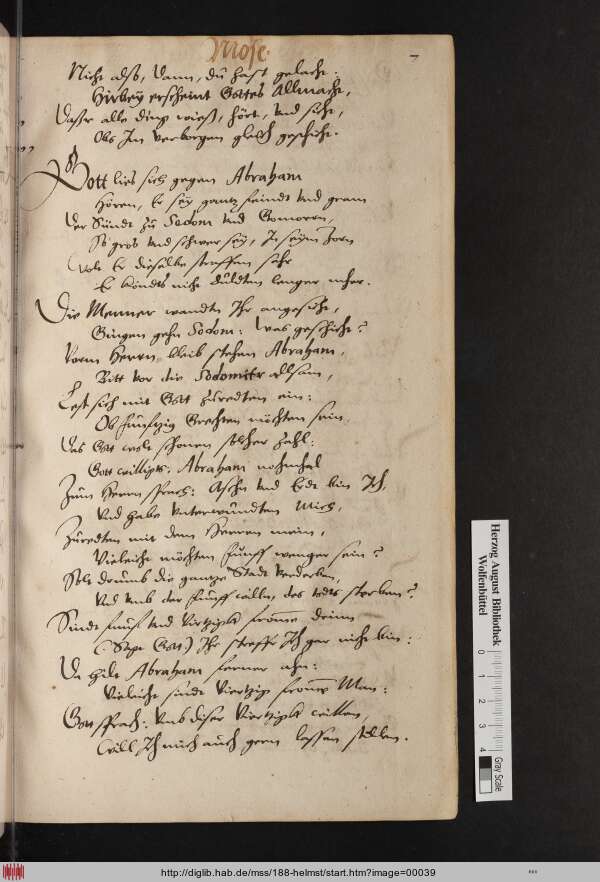 Mose. 7
Nicht also, dann, du hast gelacht.
Hirbey erscheint Gottes Allmacht,
Dass er alle ding wiess, hört, vnd sicht,
Obs Im verborgen gleich geschicht.
Gott lies sich gegen Abraham
Hören, Er sey gantz feindt vnd gram
Der Sündt zu Sodom vnd Gomorrn,
So gros vnd schwer sey, In seym Zorn
Wolt Er dieselbe straffen sehr
Er köndts nicht duldten langer mher.
Die Menner wandtn Ihr angesicht,
Gingen gehn Sodom: Was geschicht?
Vorm Herrn bleib stehen Abraham,
Bitt vor die Sodomitr allsam,
Lest sich mit Gott zuredten ein:
Ob funfftzig Grechten möchten sein
Das Gott wolt schonen solcher Zahl:
Gott willigts: Abraham nochmhal
Zum Herrn sprach: Aschn vnd Erdt bin Ich,
Vnd habe vnterwundten Mich,
Zuredten mit dem Herren mein,
Vieleicht möchten funff wenger sein?
Solt drumb die gantze Stadt verderben,
Vnd vmb der funff willn des todts sterben?
Sindt funff vnd viertzigk fromme drinn
(Sagt Gott) Ihr straffe Ich gar nicht bin:
Da hielt Abraham ferner ahn:
Vieleicht sindt viertzig fromme Man:
Gott sprach: Vmb diser viertzigk willen
Will Ich mich auch gern lassen stillen.
Herzog August Bibliothek
Wolfenbüttel
0 1 2 3 4
Gray Scale
http://diglib.hab.de/mss/188-helmst/start.htm?image=00039